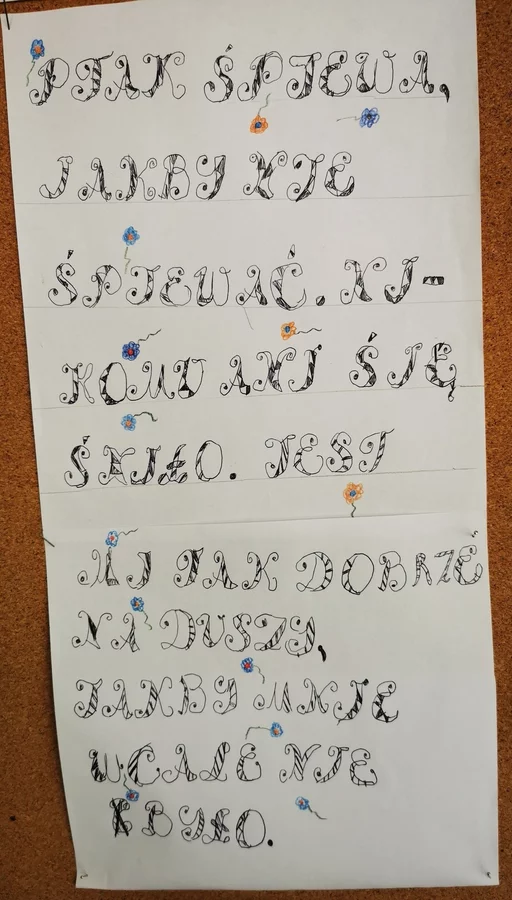 PTAK ŚPIEWA,
JAKBY NIE
ŚPIEWAĆ. NI-
KOMU ANI ŚIĘ
ŚNIŁO. JEST
MI TAK DOBRZE
NA DUSZY,
JAKBY MNIE
WCALE NIE
BYŁO.